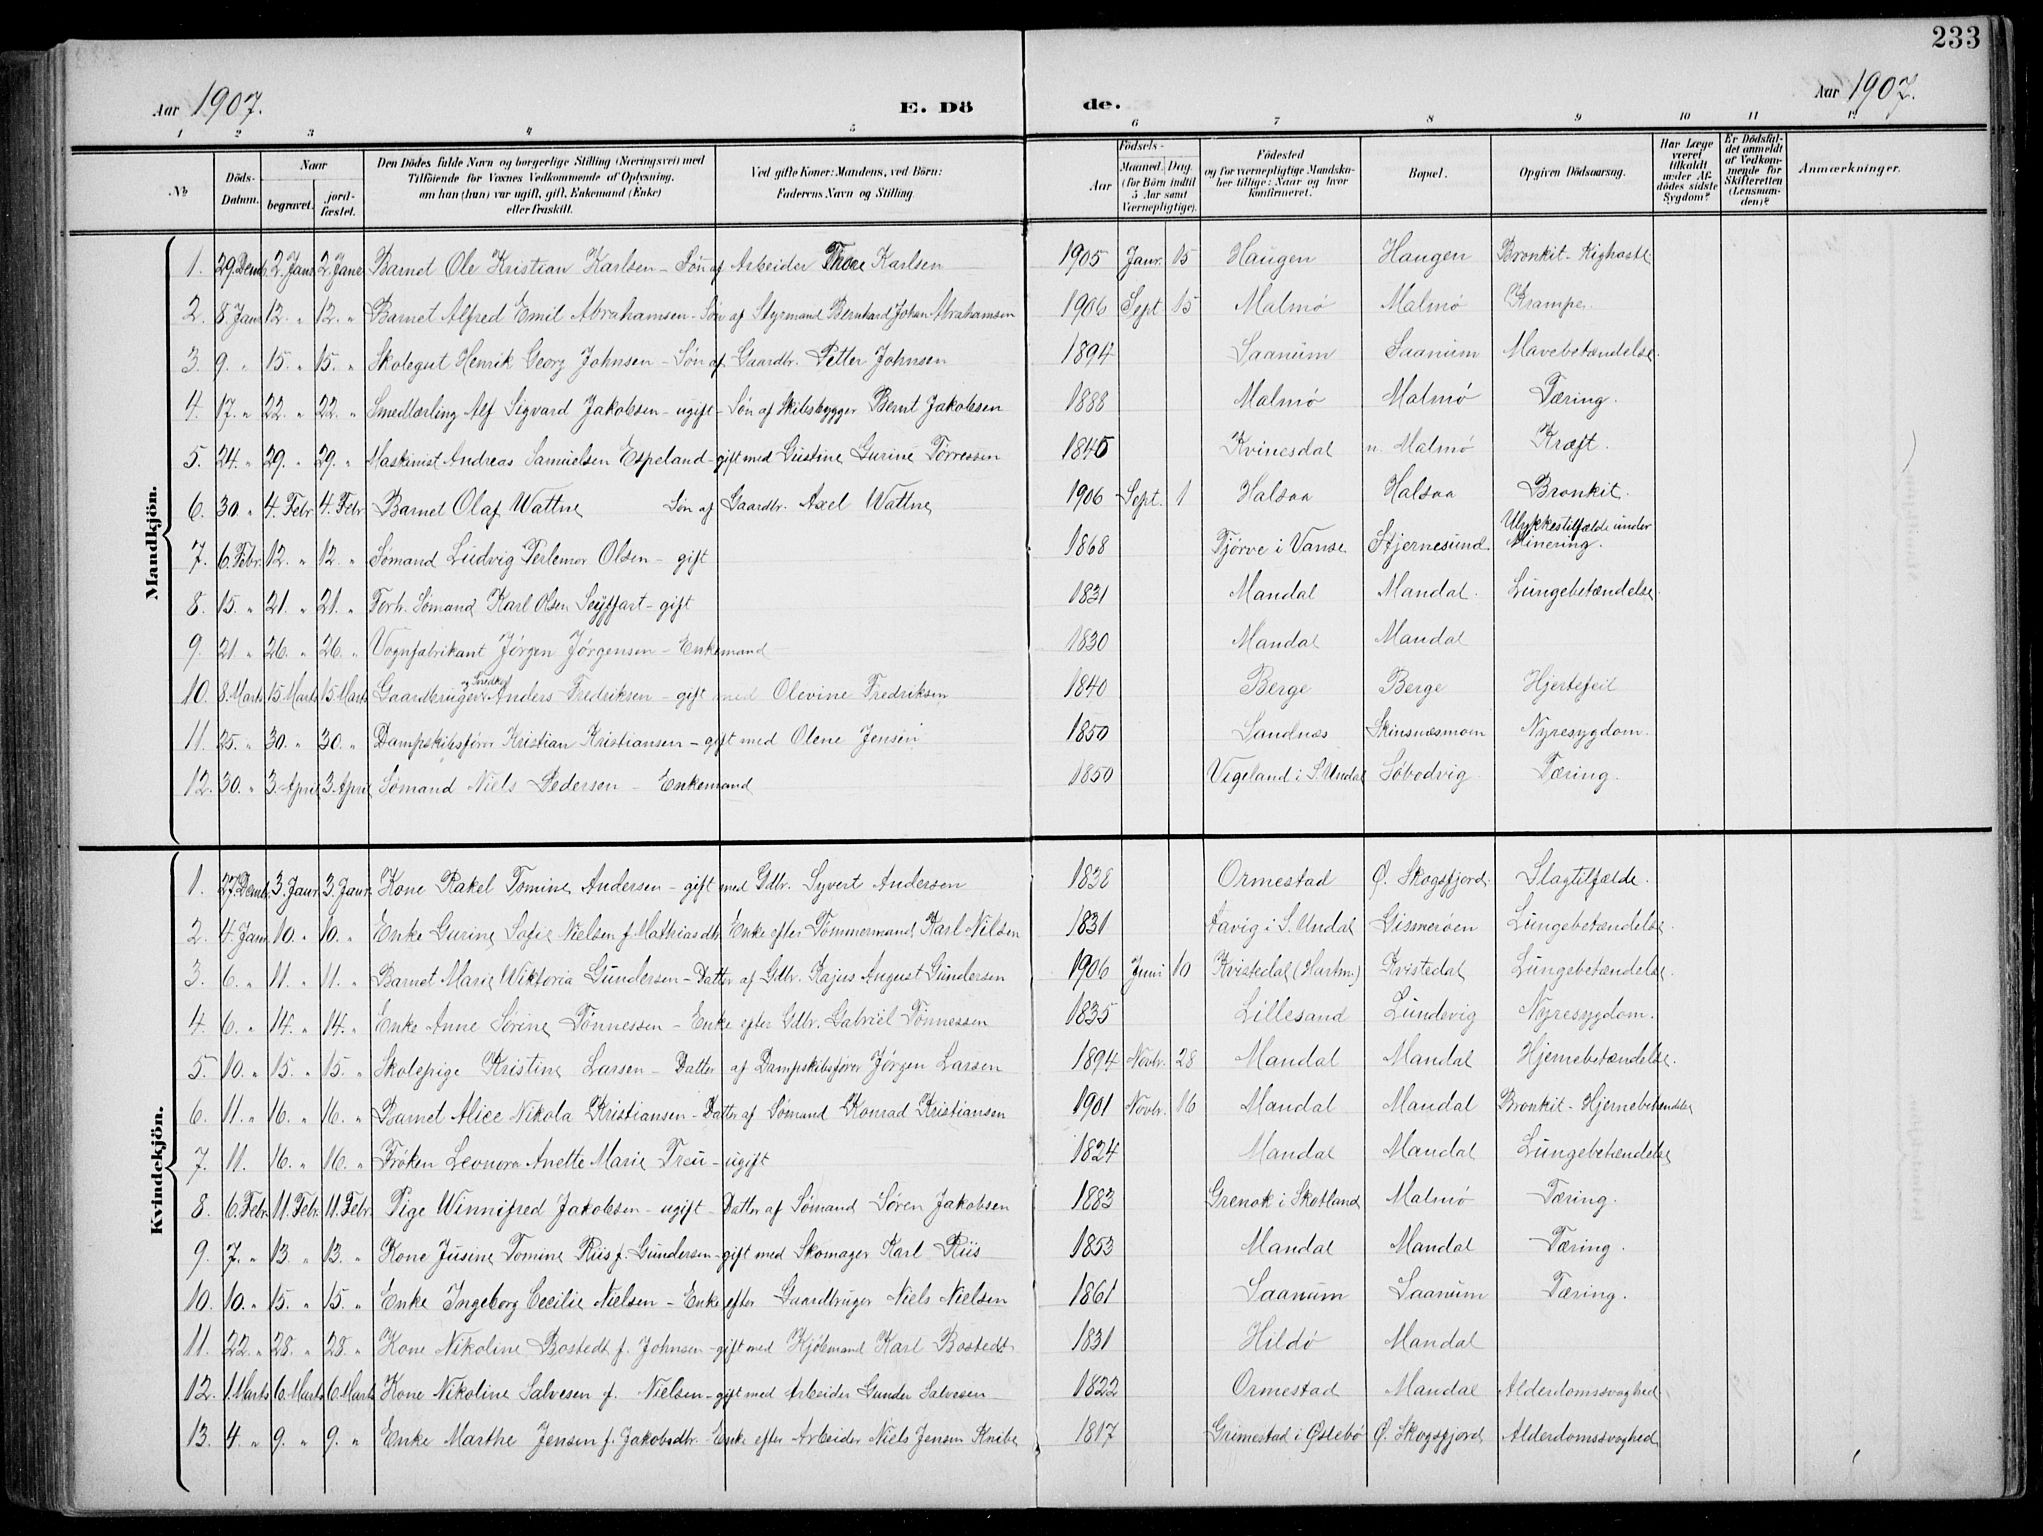 233
Aar 1907.
E. Dö
de.
Aar 1907.
1 2 3 4 5 6 7 8 9 10 11 12
No
Döds-Datum.
Naar
begravet.
jord-fæstet.
Den Dödes fulde Navn og borgerlige Stilling (Næringsvei) med
Tilföiende for Voxnes Vedkommende af Oplysning,
om han (hun) var ugift, gift, Enkemand (Enke)
eller fraskilt.
Ved gifte Koner: Mandens, ved Börn:
Faderens Navn og Stilling.
Födsels-
Aar
Maaned. Dag.
(for Börn indtil
5 Aar samt
Værnepligtige).
Födested
og for værnepligtige Mandska-
ber tillige: Naar og hvor
konfirmeret.
Bopæl.
Opgiven Dödsaarsag.
Har Læge
været
tilkaldt
under Af-
dödes sidste
Sygdom?
Er Dödsfal-
det anmeldt
af Vedkom-
mende for
Skifteretten
(Lensman-
den)?
Anmærkninger.
Mandkjön.
1. 29. Decmb. 2. Janr 2. Janr Barnet Ole Kristian Karlsen – Søn af Arbeider Thore Karlsen 1905 Janr. 15 Haugen Haugen Bronkit - Kighoste
2. 8. Janr 12. " 12. " Barnet Alfred Emil Abrahamsen – Søn af Styrmand Bernhard Johan Abrahamsen 1906 Sept. 15 Malmø Malmø Krampe.
3. 9. " 15. " 15. " Skolegut Henrik Georg Johnsen – Søn af Gaardbr. Petter Johnsen 1894 Saanum Saanum Mavebetændelse.
4. 17. " 22. " 22. " Smedlærling Alf Sigvard Jakobsen – ugift – Søn af Skibsbygger Bernt Jakobsen 1888 Malmø Malmø Tæring.
5. 24. " 29. " 29. " Maskinist Andreas Samuelsen Espeland – gift med Gustine Gurine Tørressen 1845 Kvinesdal n. Malmø Kræft.
6. 30 " 4. Febr 4. Febr Barnet Olaf Wattne Søn af Gaardbr. Axel Wattne 1906 Sept. 1 Halsaa Halsaa Bronkit.
7. 6. Febr. 12. " 12. " Sømand Ludvig Perlemor Olsen – gift 1868 Tjørve i Vanse Stjernesund Ulykkestilfælde under Minering.
8. 15. " 21. " 21. " Forh. Sømand Karl Olsen Seyffart – gift 1831 Mandal Mandal. Lungebetændelse.
9. 21. " 26. " 26. " Vognfabrikant Jørgen Jørgensen – Enkemand 1830 Mandal Mandal
10. 8. Marts 15. Marts 15. Marts Gaardbruger og Snedker Anders Fredriksen – gift med Olevine Fredriksen 1840 Berge Berge Hjertefeil
11. 25. " 30. " 30. " Dampskibsfører Kristian Kristiansen – gift med Olene Jensen 1850 Sandnæs Skinsnæsmoen Nyresygdom.
12. 30. " 3. April 3. April Sømand Niels Pedersen – Enkemand 1850 Vigeland i S. Undal Søbodvig Tæring.
Kvindekjön.
1. 27. Decmb. 3. Janr. 3. Janr. Kone Rakel Tomine Andersen – gift med Gdbr. Syvert Andersen 1838 Ormestad Ø. Skogsfjord Slagtilfælde.
2. 4. Janr 10. " 10. " Enke Gurine Sofie Nielsen f. Mathiasdtr. Enke efter Tømmermand Karl Nilsen 1831 Aavig i S. Undal Gismerøen Lungebetændelse.
3. 6. " 11. " 11. " Barnet Marie Wiktoria Gundersen – Datter af Gdbr. Kajus August Gundersen 1906 Juni 10 Kvistedal (Hartm.) Kvistedal Lungebetændelse.
4. 6. " 14. " 14. " Enke Anne Sørine Tønnessen – Enke efter Gdbr. Gabriel Tønnessen 1835 Lillesand Lundevig Nyresygdom.
5. 10. " 15. " 15. " Skolepige Kristine Larsen – Datter af Dampskibsfører Jørgen Larsen 1894 Novbr. 28 Mandal Mandal Hjernebetændelse.
6. 11. " 16. " 16. " Barnet Alice Nikola Kristiansen – Datter af Sømand Konrad Kristiansen 1901 Novbr. 16 Mandal Mandal Bronkit - Hjernebetændelse
7. 11. 16. " 16. " Frøken Leonora Anette Marie Treu – ugift 1824 Mandal Mandal Lungebetændelse
8. 6. Febr. 11. Febr. 11. Febr. Pige Winnifred Jakobsen – ugift – Datter af Sømand Søren Jakobsen 1883 Grenok i Skotland Malmø Tæring.
9. 7. " 13. " 13. " Kone Jusine Tomine Riis f. Gundersen – gift med Skomager Karl Riis 1853 Mandal Mandal Tæring.
10. 10. " 15. " 15. " Enke Ingeborg Cecilie Nielsen – Enke efter Gaardbruger Niels Nielsen 1861 Saanum Saanum Tæring.
11. 22. " 28. " 28. " Kone Nikoline Bostedt f. Johnsen – gift med Kjøbmand Karl Bostedt 1831 Hildø Mandal
12. 1. Marts 6. Marts 6. Marts Kone Nikoline Salvesen f. Nielsen – gift med Arbeider Gunder Salvesen 1822 Ormestad Mandal Alderdomssvaghed
13. 4. " 9. " 9. " Enke Marthe Jensen f. Jakobsdtr. Enke efter Arbeider Niels Jensen Knibe 1817 Grimestad i Øslebø Ø. Skogsfjord Alderdomssvaghed